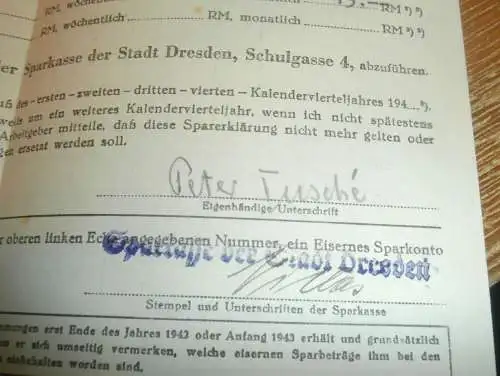 15,— RM ⁵) ⁶)
RM, wöchentlich RM, monatlich RM ⁵) ⁶)
der Sparkasse der Stadt Dresden, Schulgasse 4, abzuführen.
des -ersten - zweiten - dritten - vierten - Kalendervierteljahres 194
um ein weiteres Kalendervierteljahr, wenn ich nicht spätestens
Arbeitgeber mitteile, daß diese Sparerklärung nicht mehr gelten oder
ersetzt werden soll.
Peter Tusché
Eigenhändige Unterschrift
oberen linken Ecke angegebenen Nummer, ein Eisernes Sparkonto
Sparkasse der Stadt Dresden
Stempel und Unterschriften der Sparkasse
erst Ende des Jahres 1942 oder Anfang 1943 erhält und grundsätzlich
er sich umseitig vermerken, welche eisernen Sparbeträge ihm bei den
einbehalten worden sind.